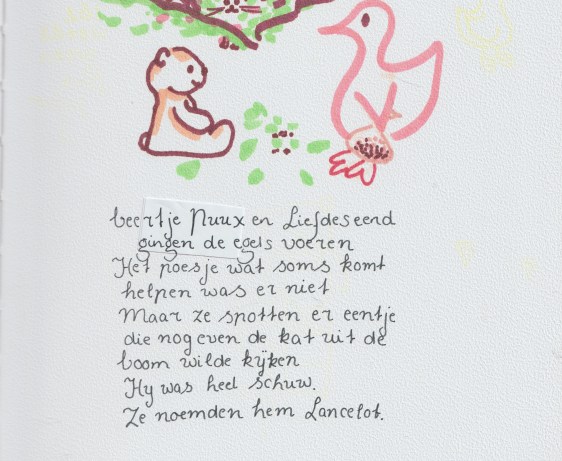 beertje Nuux en Liefdeseend
gingen de egels voeren
Het poesje wat soms komt
helpen was er niet
Maar ze spotten er eentje
die nog even de kat uit de
boom wilde kijken
Hy was heel schuw.
Ze noemden hem Lancelot.